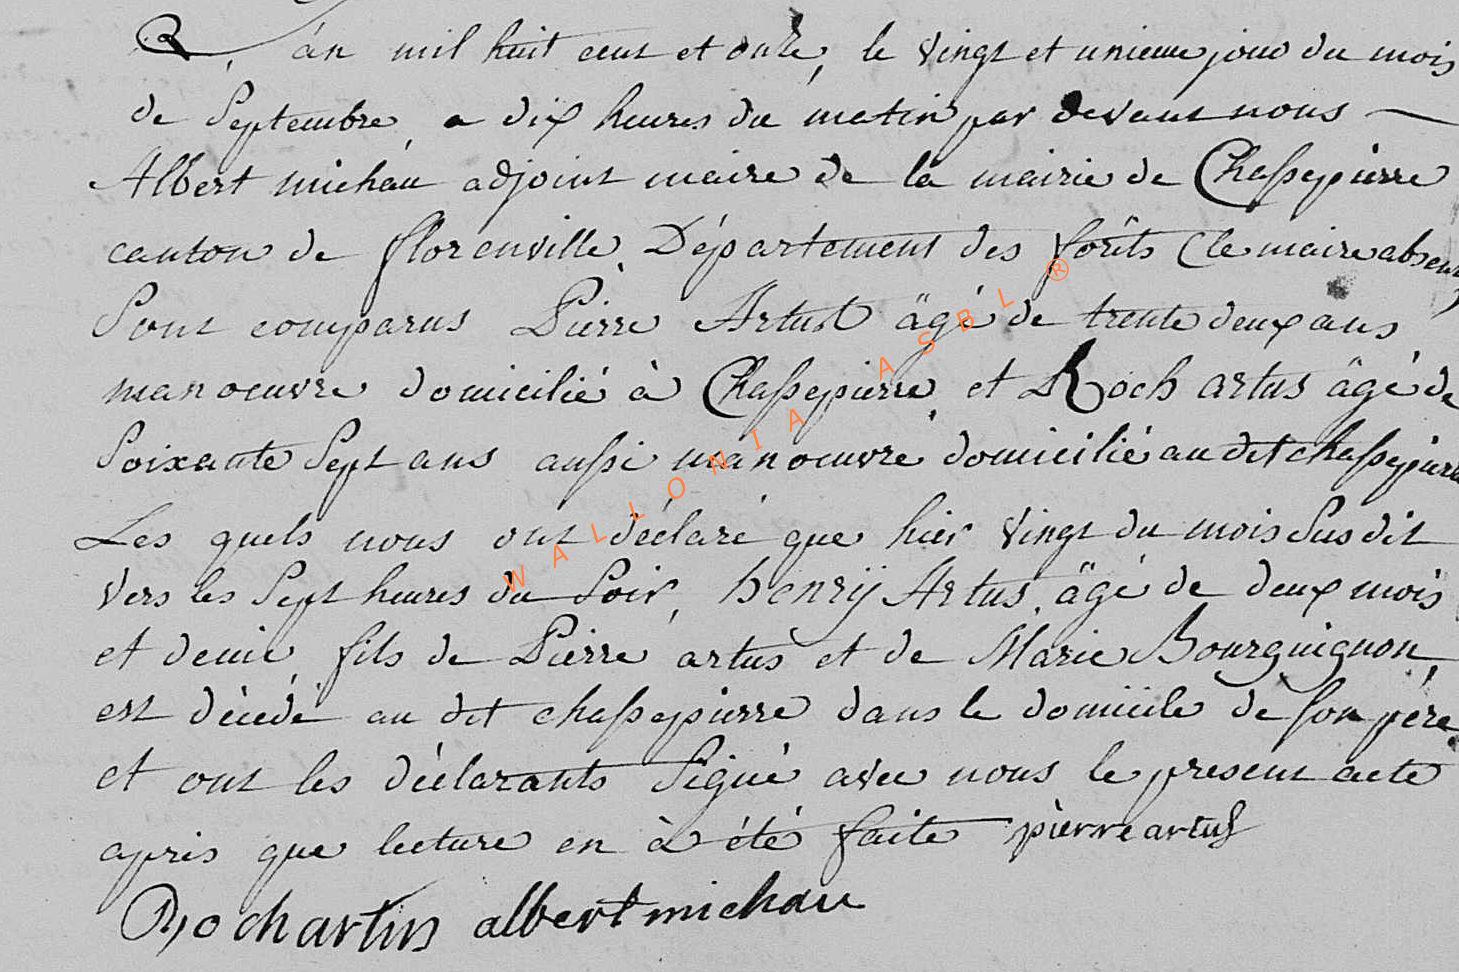 L'án mil huit cent et onze, le vingt et unieme jour du mois
de Septembre a dix heures du matin par devant nous
Albert michau adjoint maire de la mairie de Chassepierre
canton de florenville Département des forêts (le maire absent)
Sont comparus Pierre Artus âgé de trente deux ans
manoeuvre domicilié à Chassepierre et Roch artus âgé de
Soixante Sept ans aussi manoeuvre domicilié au dit chassepierre
Les quels nous ont déclaré que hier vingt du mois Susdit
vers les Sept heures du Soir, henrÿ Artus âgé de deux mois
et demie fils de Pierre artus et de Marie Bourguignon,
est décédé au dit chassepierre dans le domicile de son père
et ont les déclarants Signé avec nous le present acte
apris que lecture en à été faite pierre artus
Roch artus albert michau
WALLONIA ASBL ®